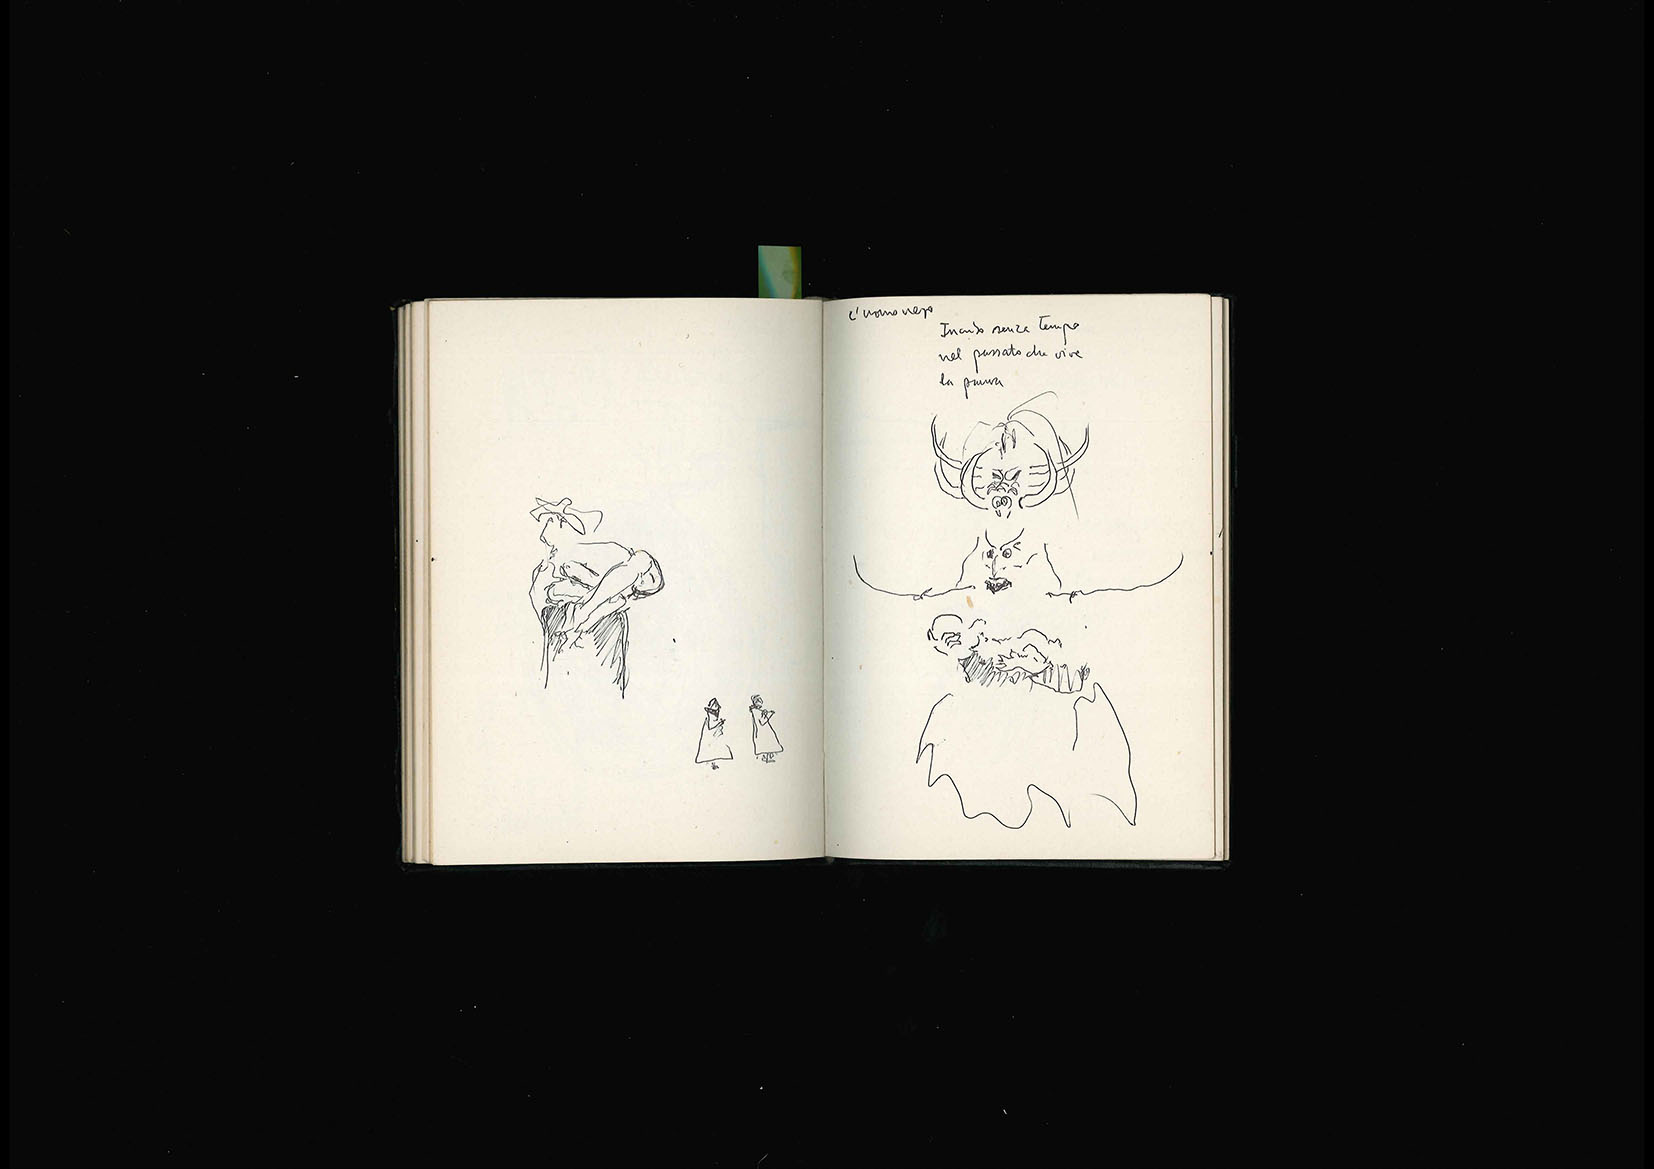 l'uomo nero
senza tempo
nel passato che vive
la paura